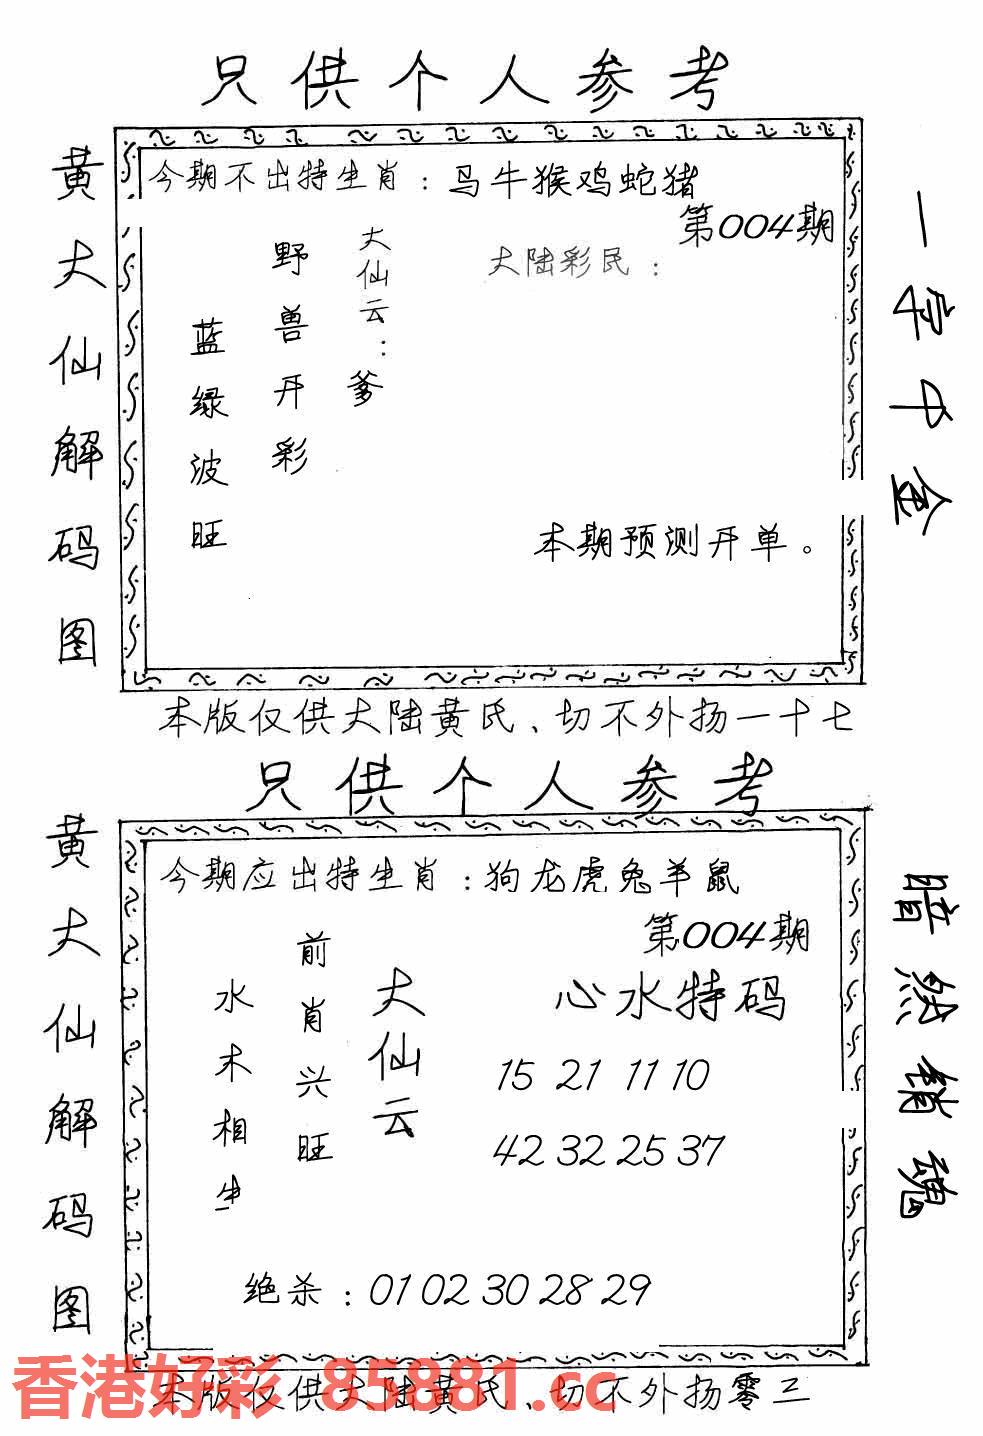 只供个人参考
黄大仙解码图
今期不出特生肖：马牛猴鸡蛇猪
第004期
大陆彩民：
大仙云：爹
野兽开彩
蓝绿波旺
本期预测开单。
一字中金
本版仅供大陆黄氏、切不外扬一十七
只供个人参考
黄大仙解码图
今期应出特生肖：狗龙虎兔羊鼠
第004期
大仙云
前肖兴旺
水木相生
心水特码
15 21 11 10
42 32 25 37
绝杀：01 02 30 28 29
暗然销魂
香港好彩 85881.cc
本版仅供大陆黄氏、切不外扬零三